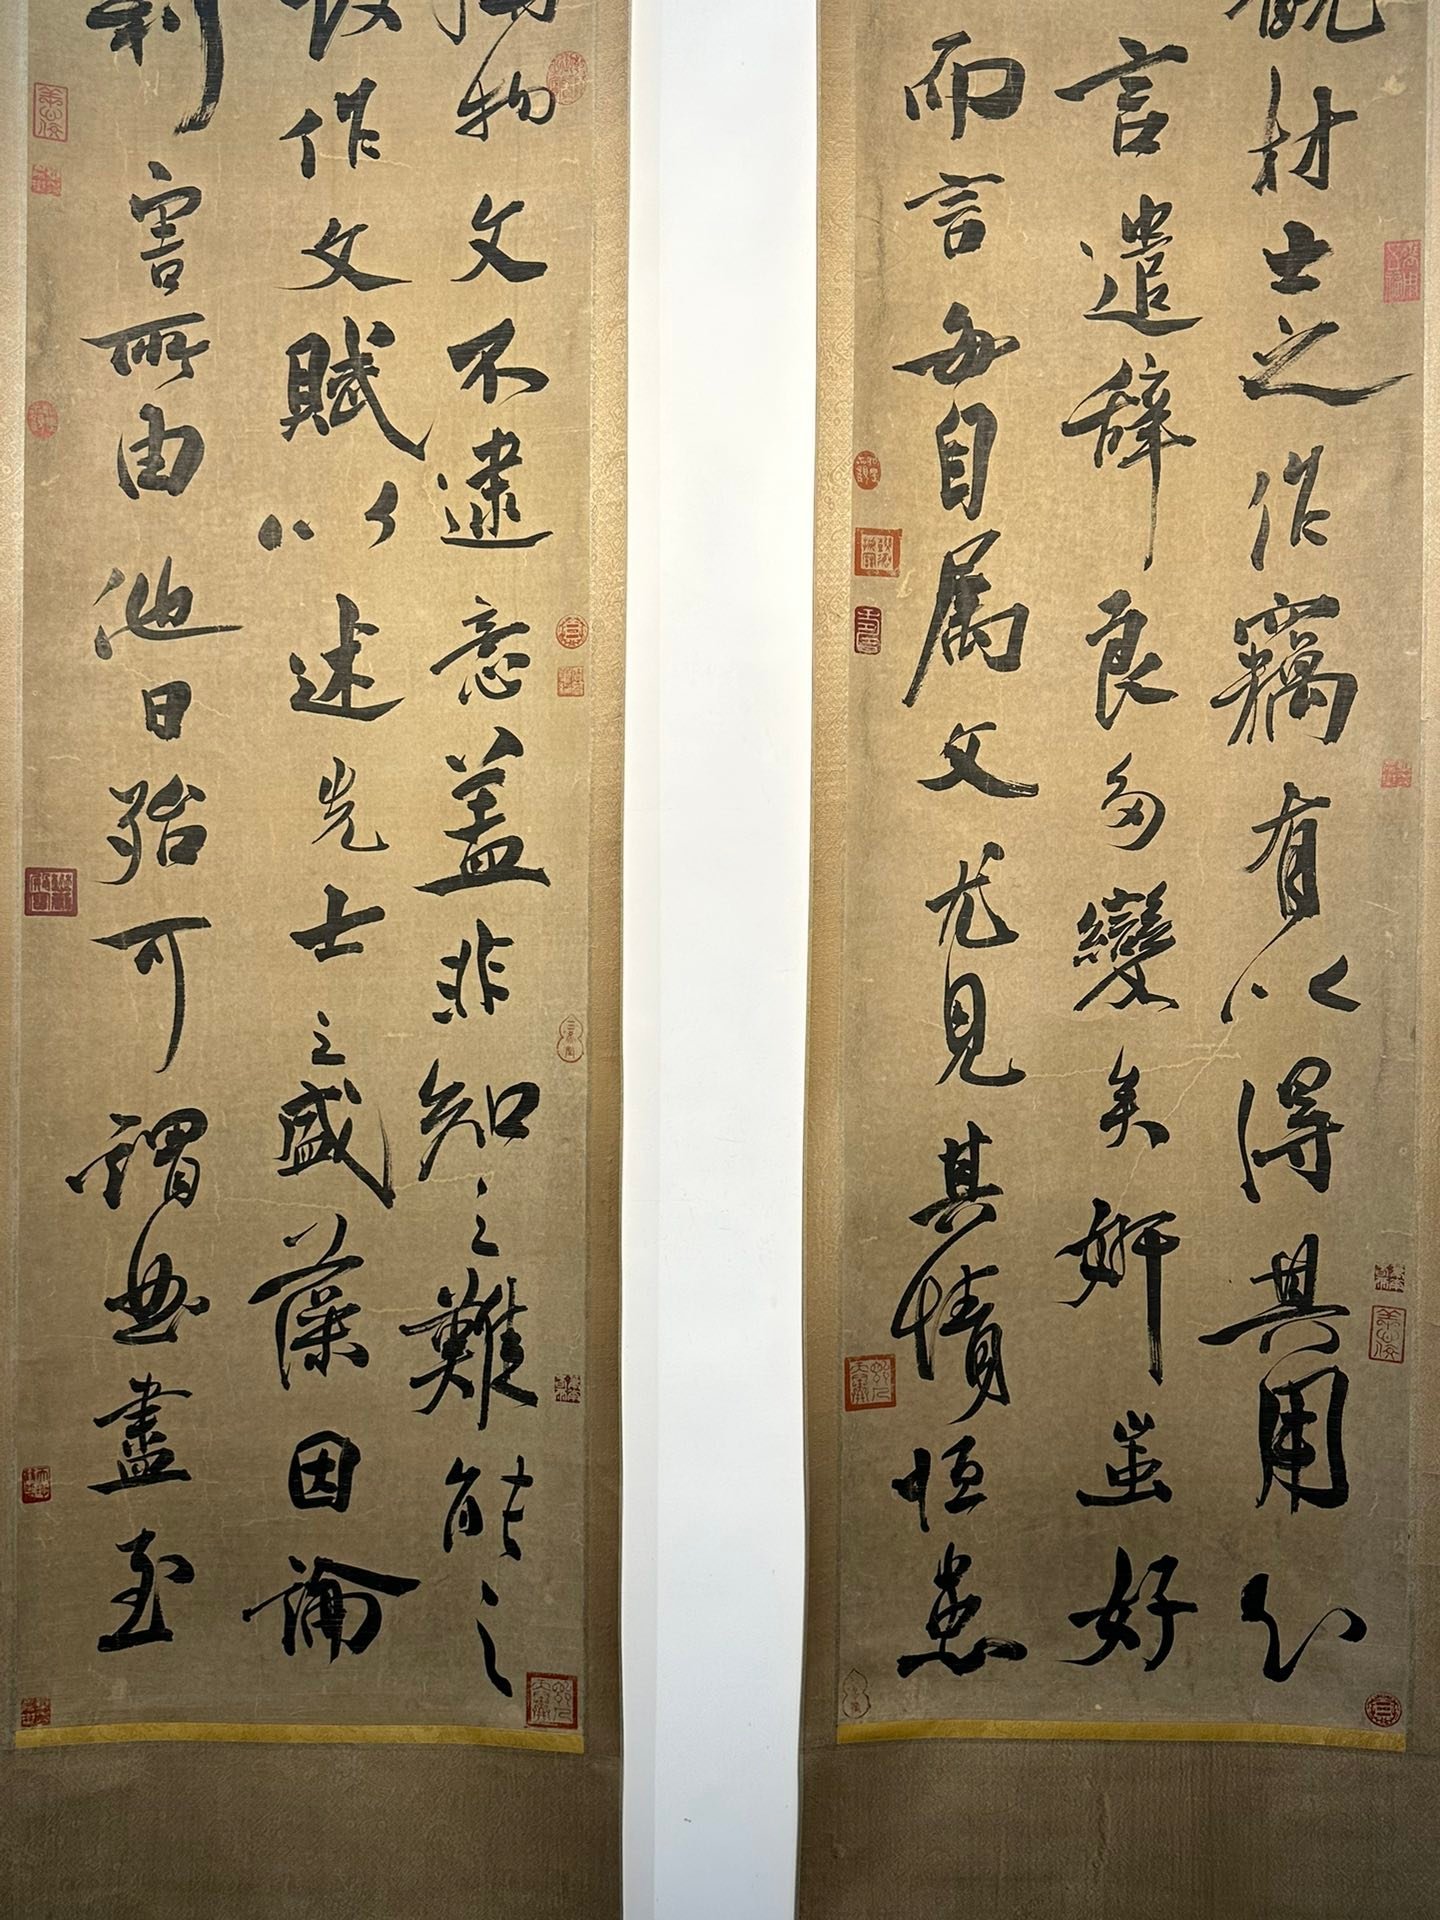 觀材士之作竊有以得其用心
言遣辞良多變矣妍蚩好
而言每自属文尤见其情恒患
物文不逮意盖非知之難能之
故作文賦以述先士之盛藻因論
利害所由他日殆可謂曲盡至